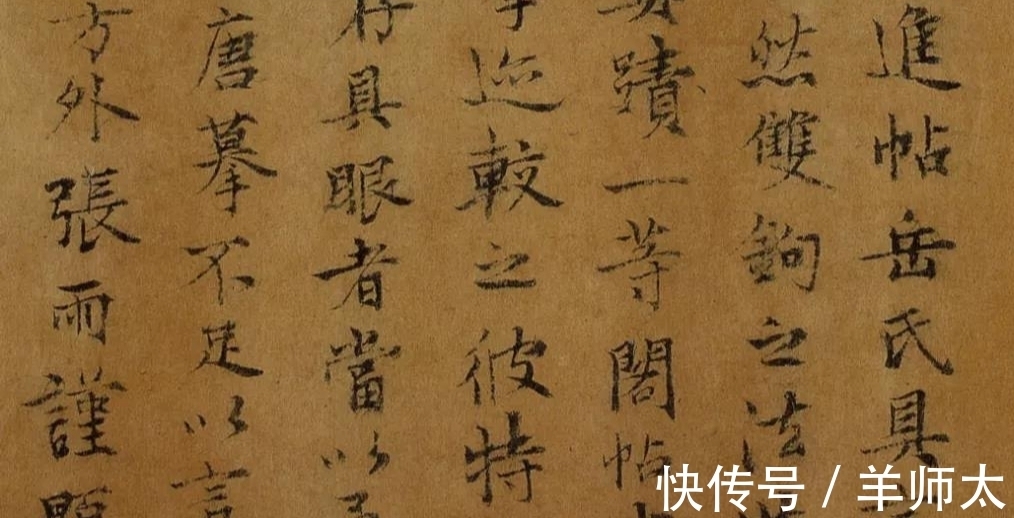 進帖岳氏具
然雙鉤之法
蹟一等閣帖
迹較之彼特
具眼者當以
唐摹不足以言
方外張雨謹
快传号 / 羊师太